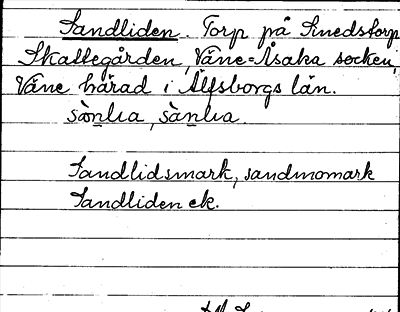 Sandliden. Torp på Smedstorp
Skattegården, Väne-Åsaka socken,
Väne härad i Älfsborgs län.
sànlıa, sànlıa.
Sandlidsmark, sandmomark
Sandliden ek.